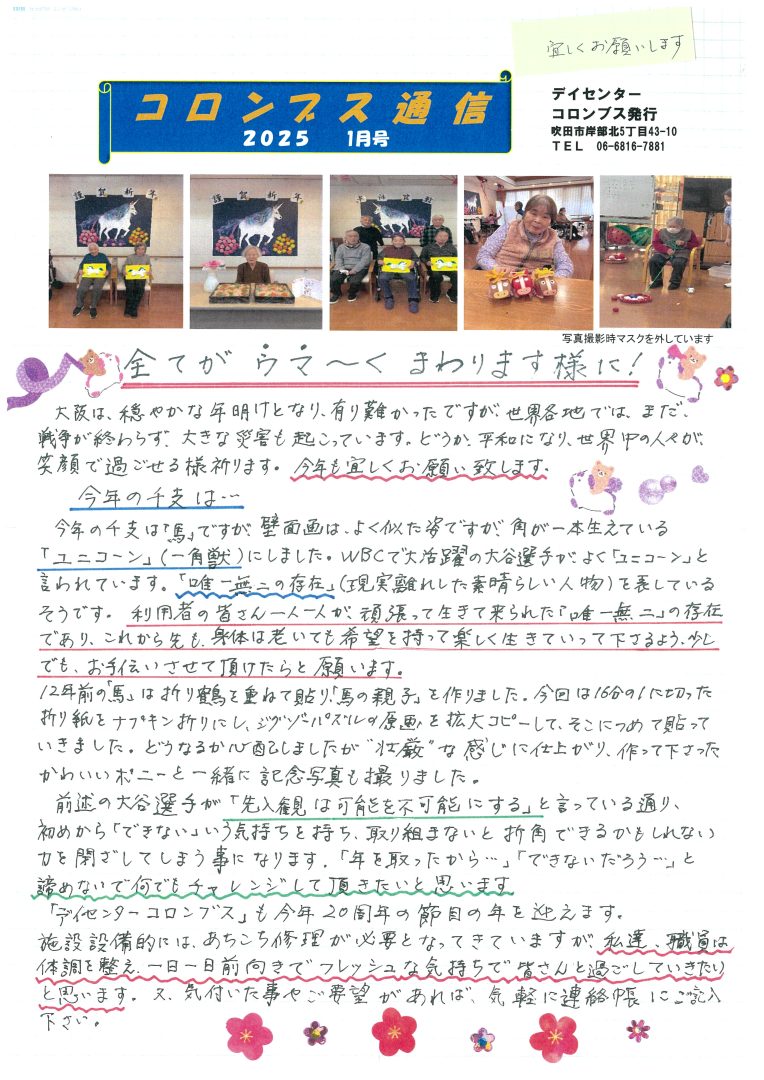 宜しくお願いします
コロンブス通信
2025 1月号
デイセンター
コロンブス発行
吹田市岸部北5丁目43-10
TEL 06-6816-7881
謹賀新年
謹賀新年
写真撮影時マスクを外しています
全てがウマ〜くまわります様に!
大阪は、穏やかな年明けとなり、有り難かったですが、世界各地では、まだ、
戦争が終わらず、大きな災害も起こっています。どうか、平和になり、世界中の人々が、
笑顔で過ごせる様祈ります。今年も宜しくお願い致します。
今年の干支は…
今年の干支は「馬」ですが、壁面画は、よく似た姿ですが、角が一本生えている
「ユニコーン」(一角獣)にしました。WBCで大活躍の大谷選手が、よく「ユニコーン」と
言われています。「唯一無二の存在」(現実離れした素晴らしい人物)を表している
そうです。利用者の皆さん一人一人が、頑張って生きて来られた「唯一無二」の存在
であり、これから先も、身体は老いても希望を持って楽しく生きていって下さるよう、少し
でも、お手伝いさせて頂けたらと願います。
12年前の「馬」は折り鶴を重ねて貼り、「馬の親子」を作りました。今回は16分の1に切った
折り紙をナプキン折りにし、ジグゾーパズルの原画を拡大コピーして、そこにつめて貼って
いきました。どうなるか心配しましたが"壮厳"な感じに仕上がり、作って下さった
かわいいポニーと一緒に記念写真も撮りました。
前述の大谷選手が「先入観は可能を不可能にする」と言っている通り、
初めから「できない」いう気持ちを持ち、取り組まないと折角できるかもしれない
力を閉ざしてしまう事になります。「年を取ったから…」「できないだろう…」と
諦めないで何でもチャレンジして頂きたいと思います
「デイセンターコロンブス」も今年20周年の節目の年を迎えます。
施設設備的には、あちこち修理が必要となってきていますが、私達、職員は
体調を整え、一日一日前向きでフレッシュな気持ちで皆さんと過ごしていきたい
と思います。又、気付いた事やご要望があれば、気軽に連絡帳にご記入
下さい。